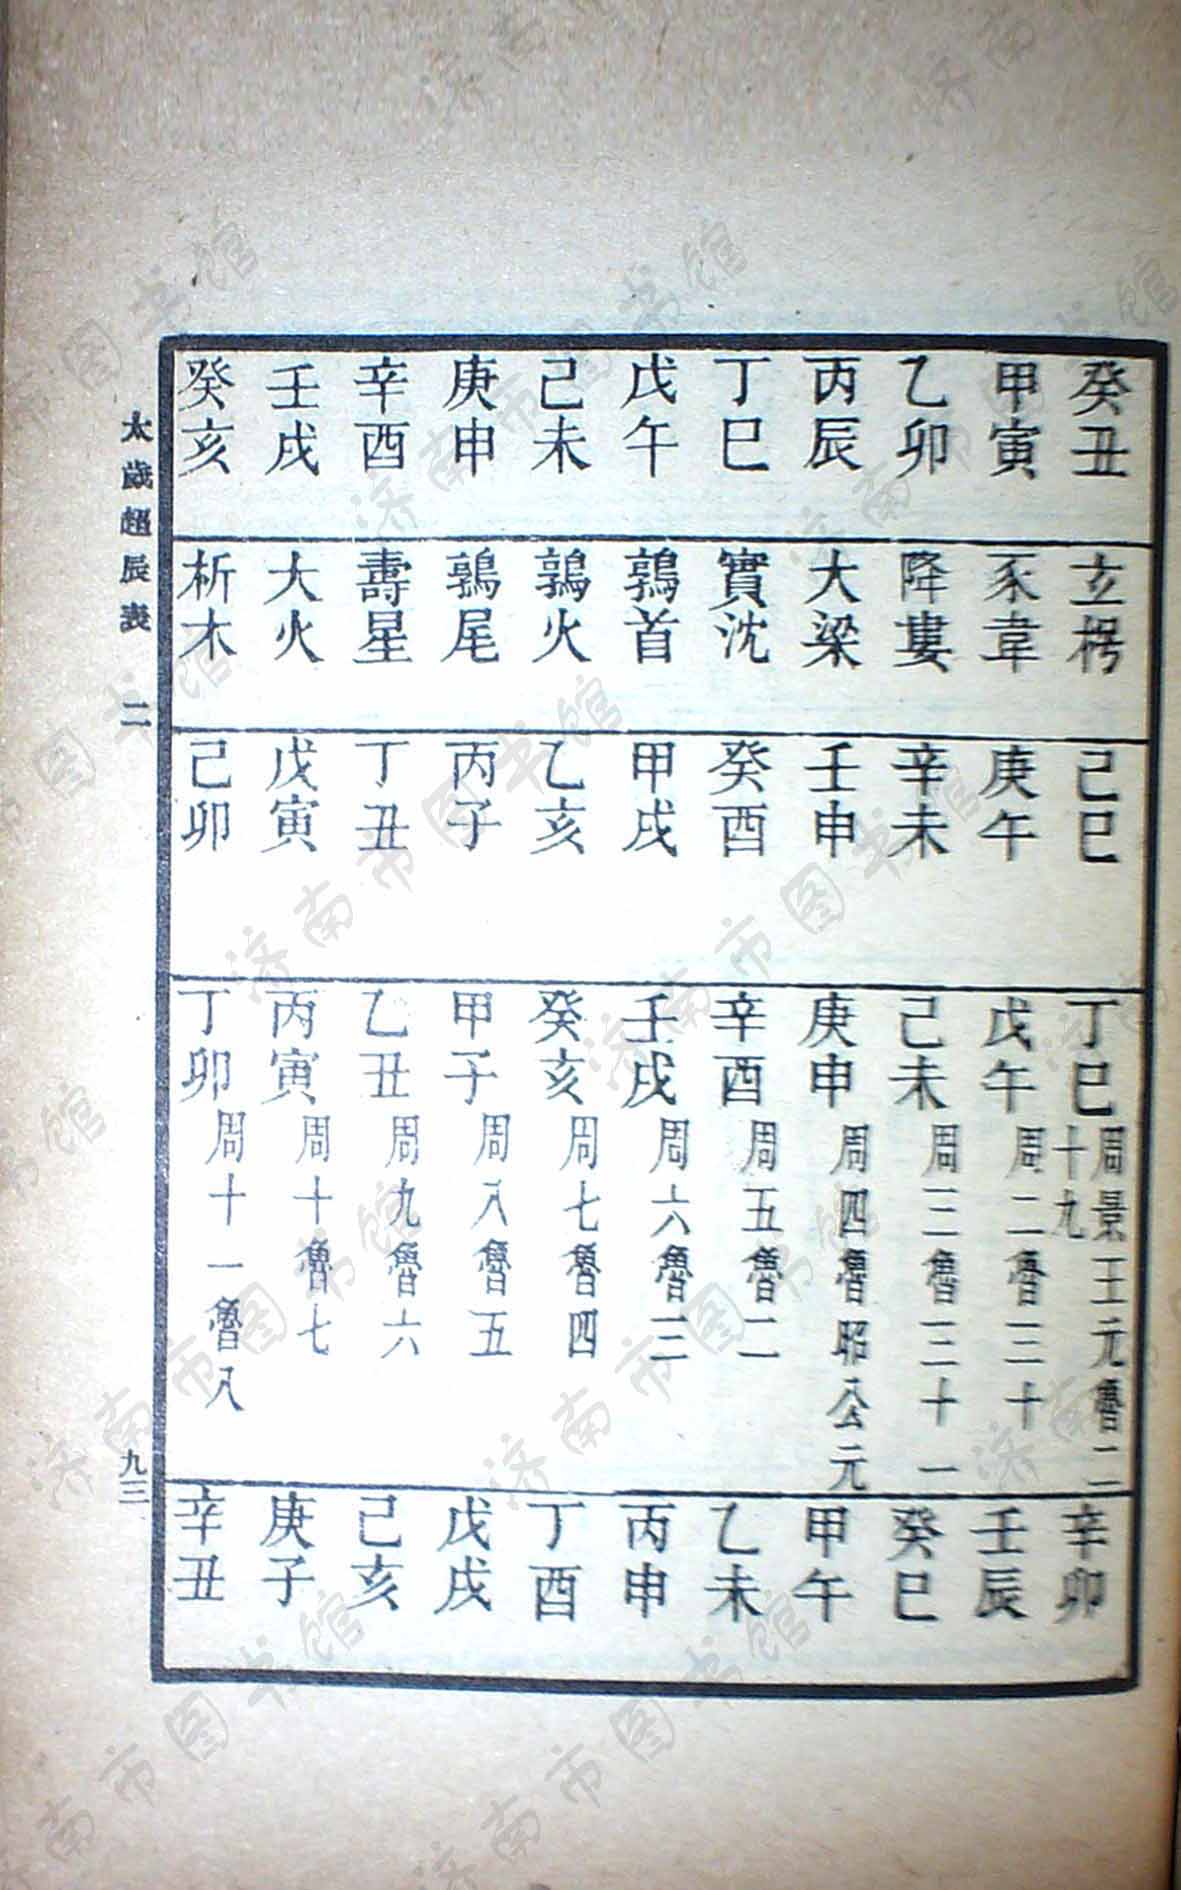 癸丑 玄枵 己巳 丁巳 周景王元魯二十九 辛卯
甲寅 豕韋 庚午 戊午 周二魯三十 壬辰
乙卯 降婁 辛未 己未 周三魯三十一 癸巳
丙辰 大梁 壬申 庚申 周四魯昭公元 甲午
丁巳 實沈 癸酉 辛酉 周五魯二 乙未
戊午 鶉首 甲戌 壬戌 周六魯三 丙申
己未 鶉火 乙亥 癸亥 周七魯四 丁酉
庚申 鶉尾 丙子 甲子 周八魯五 戊戌
辛酉 壽星 丁丑 乙丑 周九魯六 己亥
壬戌 大火 戊寅 丙寅 周十魯七 庚子
癸亥 析木 己卯 丁卯 周十一魯八 辛丑
太歲超辰表 二 九三
济南市图书馆